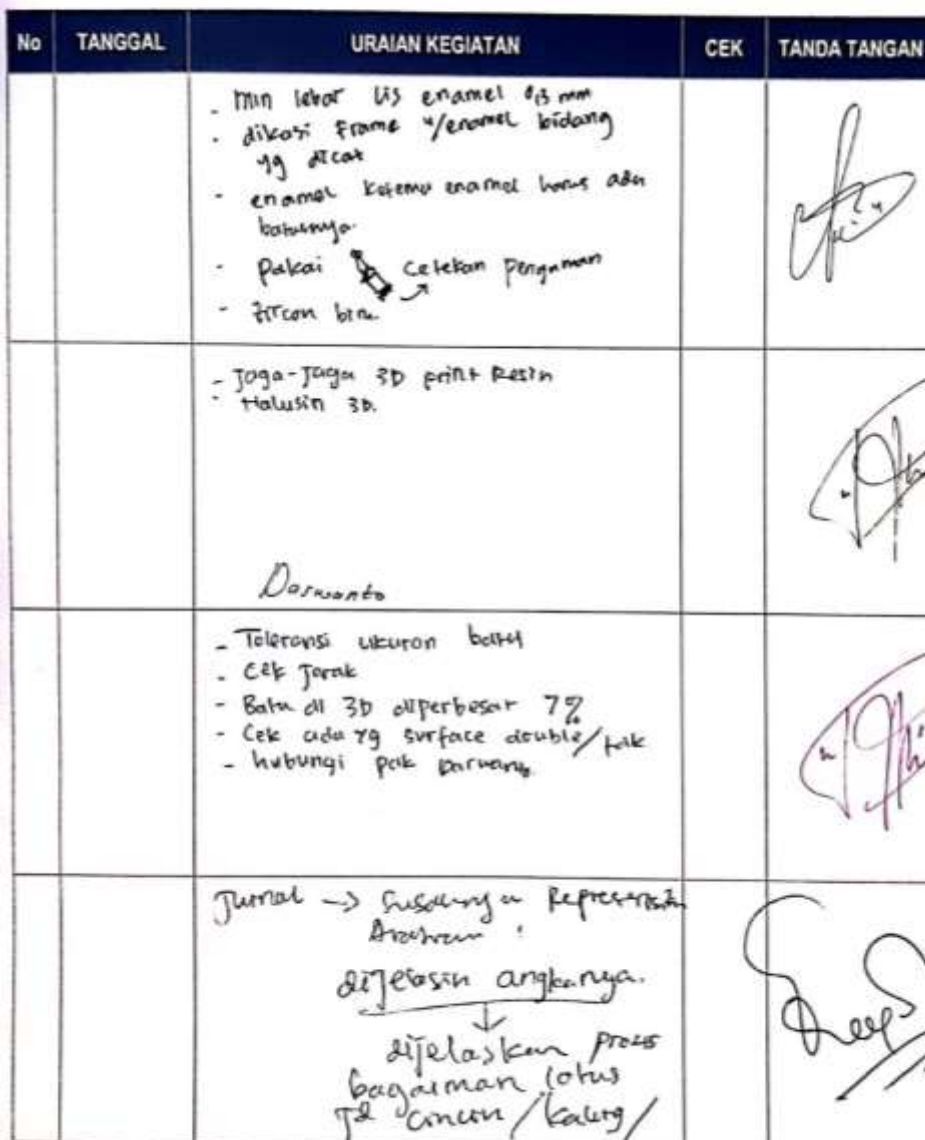 No TANGGAL URAIAN KEGIATAN CEK TANDA TANGAN
- Min lebar lis enamel 0,3 mm
- dikasi Frame u/enamel bidang
yg dicat
- enamel ketemu enamel harus ada
batasnya.
- Pakai cetekan pengaman
- zircon biru
- Jaga-Jaga 3D print Resin
- Halusin 3D.
Darwanto
- Toleransi ukuran batu
- Cek Jarak
- Batu di 3D diperbesar 7%
- Cek ada yg surface double/tak
- hubungi pak
Jurnal →
dijelasin angkanya.
dijelaskan proses
bagaiman lotus
Jd cincin / kalung /